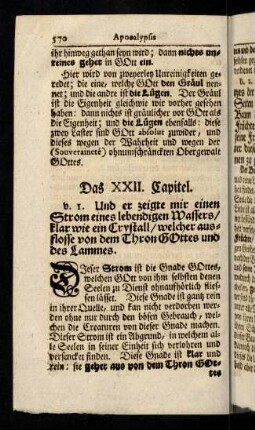 570 Apocalypsis
ihr hinweg gethan seyn wird; dann nichts un-
reines gehet in GOtt ein.
Hier wird von zweyerley Unreinigkeiten ge-
redet; die eine, welche GOtt den Gräul nen-
net; und die andre ist die Lügen. Der Gräul
ist die Eigenheit gleichwie wir vorher gesehen
haben: dann nichts ist gräulicher vor GOtt als
die Eigenheit; und die Lügen ebenfalls: diese
zwey Laster sind GOtt absolut zuwider, und
dieses wegen der Wahrheit und wegen der
(Souveraineté) ohnumschränckten Obergewalt
GOttes.
Das XXII. Capitel.
v. 1. Und er zeigte mir einen
Strom eines lebendigen Wassers/
klar wie ein Crystall/ welcher aus-
flosse von dem Thron GOttes und
des Lammes.
DIeser Strom ist die Gnade GOttes,
welchen GOtt von ihm selbsten denen
Seelen zu Dienst ohnaufhörlich flies-
sen lässet. Diese Gnade ist gantz rein
in ihrer Quelle, und kan nicht verdorben wer-
den ohne nur durch den bösen Gebrauch, wel-
chen die Creaturen von dieser Gnade machen.
Dieser Strom ist ein Abgrund, in welchem al-
le Seelen in seiner Einheit sich verlohren und
versencket finden. Diese Gnade ist klar und
rein: sie gehet aus von dem Thron GOt-
tes